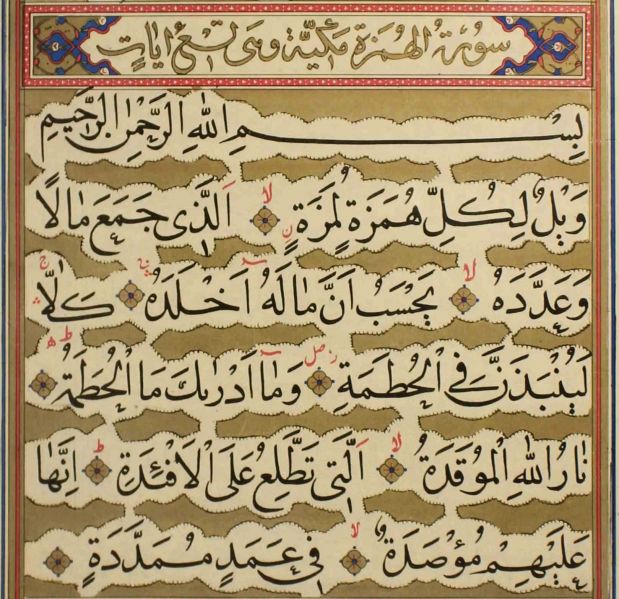 سورة الهمزة مكية وهى تسع ايات
بِسْمِ اللهِ الرَّحْمٰنِ الرَّحِيمِ
وَيْلٌ لِكُلِّ هُمَزَةٍ لُمَزَةٍ اَلَّذِى جَمَعَ مَالًا
وَعَدَّدَهُ يَحْسَبُ اَنَّ مَالَهُ اَخْلَدَهُ كَلَّا
لَيُنْبَذَنَّ فِى الْحُطَمَةِ وَمَا اَدْرٰيكَ مَا الْحُطَمَةُ
نَارُ اللهِ الْمُوقَدَةُ اَلَّتِى تَطَّلِعُ عَلَى الْاَفْئِدَةِ اِنَّهَا
عَلَيْهِمْ مُؤْصَدَةٌ فِى عَمَدٍ مُمَدَّدَةٍ